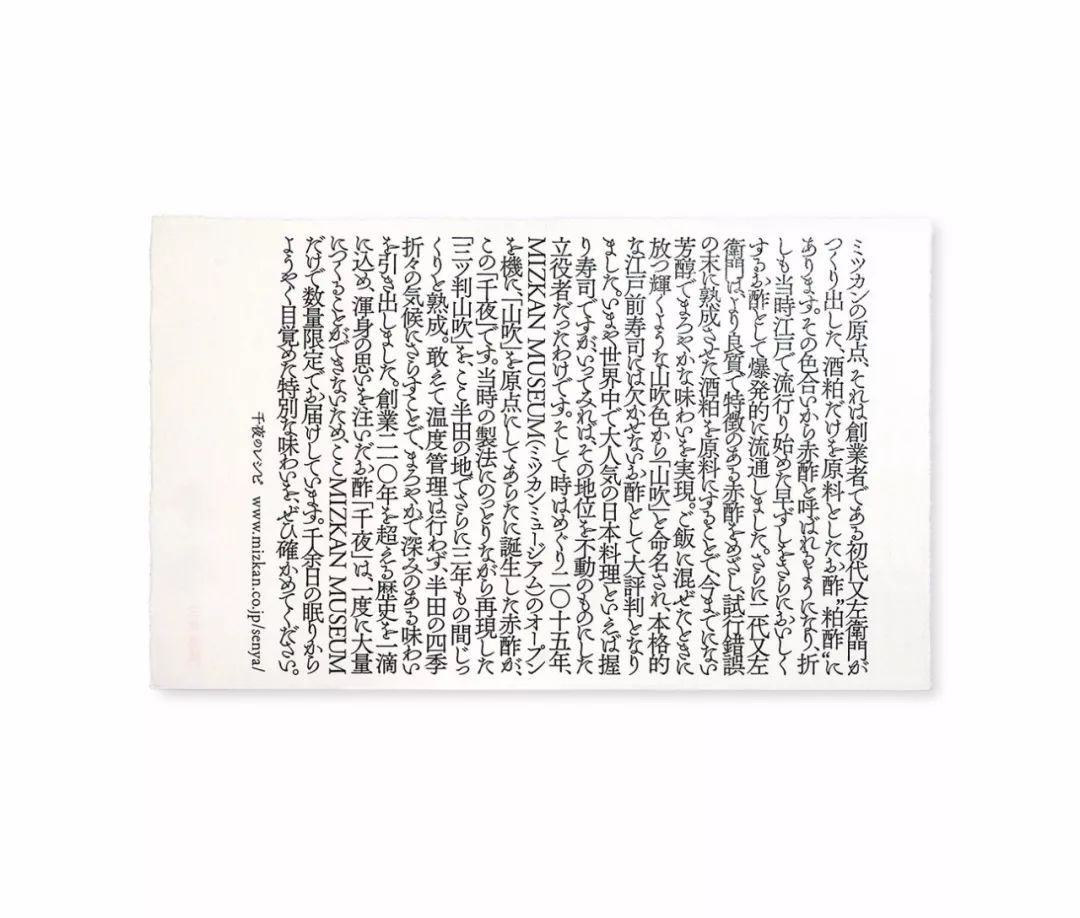 ミツカンの原点、それは創業者である初代又左衛門が
つくり出した、酒粕だけを原料としたお酢”粕酢“に
あります。その色合いから赤酢と呼ばれるようになり、折
しも当時江戸で流行り始めた早ずしをさらにおいしく
するお酢として爆発的に流通しました。さらに二代又左
衛門はより良質で特徴のある赤酢をめざし、試行錯誤
の末に熟成させた酒粕を原料にすることで、今までにない
芳醇でまろやかな味わいを実現。ご飯に混ぜたときに
放つ輝くような山吹色から「山吹」と命名され、本格的
な江戸前寿司には欠かせないお酢として大評判となり
ました。いまや世界中で大人気の日本料理といえば握
り寿司ですが、いってみれば、その地位を不動のものにした
立役者だったわけです。そして時はめぐり二〇十五年、
MIZKAN MUSEUM(ミツカンミュージアム)のオープン
を機に、「山吹」を原点にしてあらたに誕生した赤酢が、
この「千夜」です。当時の製法にのっとりながら再現した
「三ツ判山吹」を、ここ半田の地でさらに三年もの間じっ
くりと熟成。敢えて温度管理は行わず、半田の四季
折々の気候にさらすことで、まろやかで深みのある味わい
を引き出しました。創業二一〇年を超える歴史を一滴
に込め、渾身の思いを注いだお酢「千夜」は、一度に大量
につくることができないため、ここMIZKAN MUSEUM
だけで数量限定でお届けしています。千余日の眠りから
ようやく目覚めた特別な味わいを、ぜひ確かめてください。
千夜のレシピ www.mizkan.co.jp/senya/